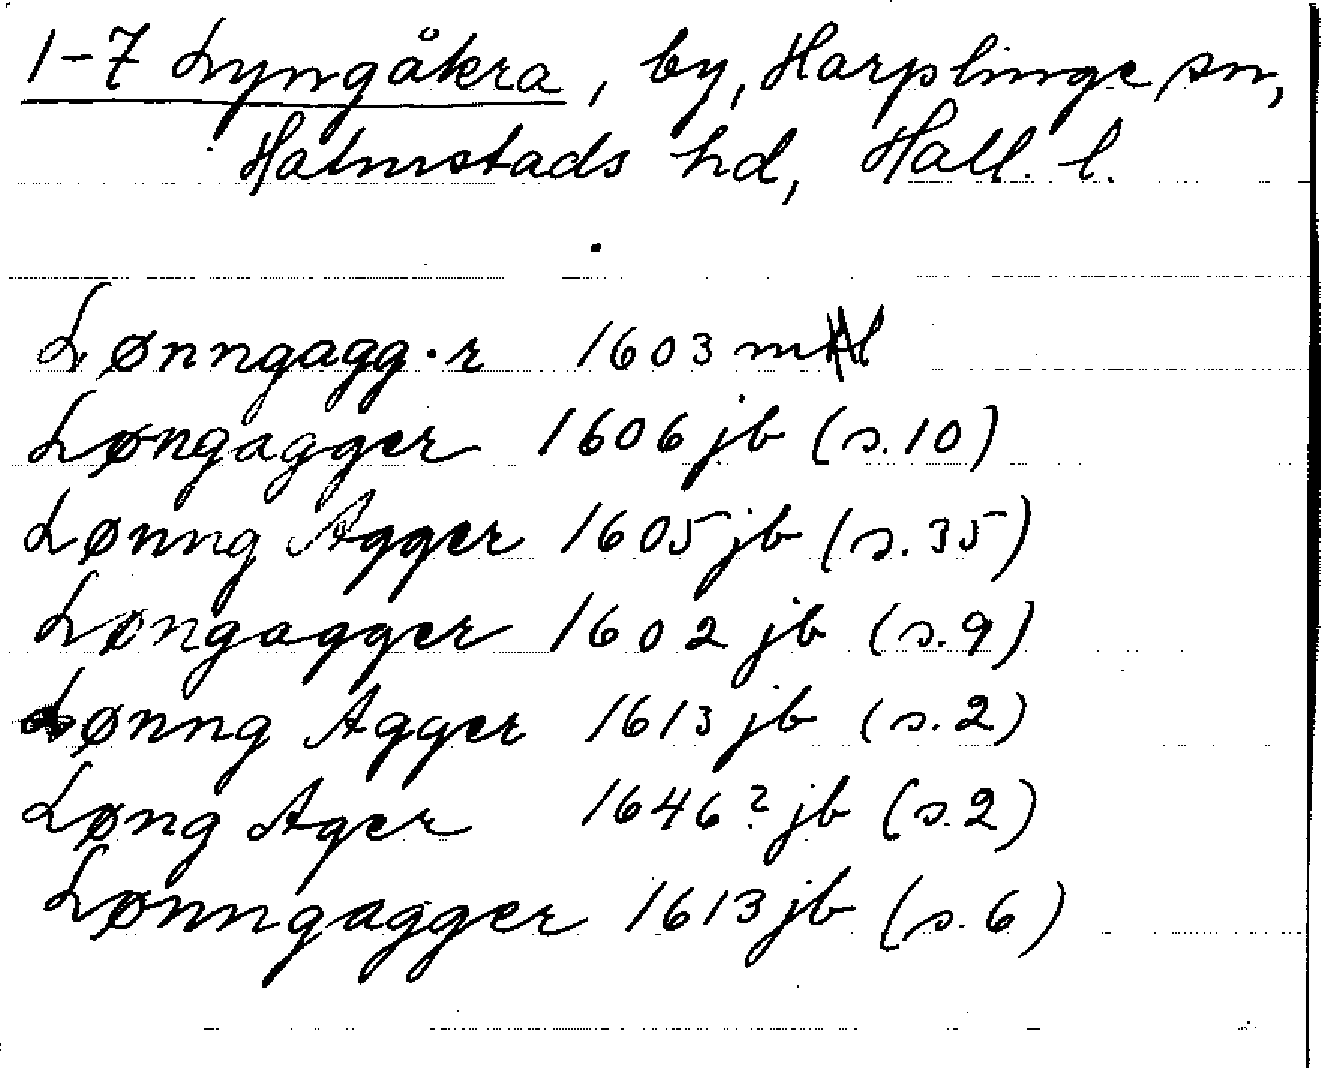 1-7 Lyngåkra, by, Harplinge sn,
Halmstads hd, Hall. l.
Lønngagg.r 1603
Løngagger 1606 jb (s.10)
Lønng Agger 1605 jb (s.35)
Løngagger 1602 jb (s.9)
Lønng Agger 1613 jb (s.2)
Løng Ager 1646? jb (s.2)
Lønngagger 1613 jb (s.6)